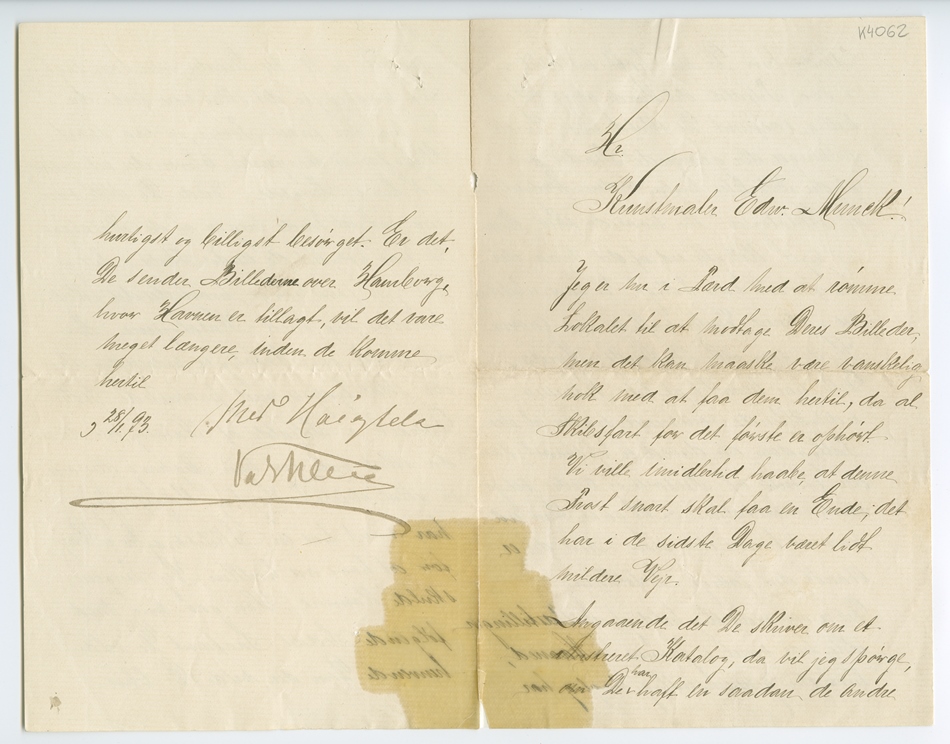 K4062
Hr
Kunstmaler Edw. Munck!
Jeg er nu i Færd med at rømme
Lokalet til at modtage Deres Billeder;
men det kan maaske være vanskelig
nok med at faa dem hertil, da al
Skibsfart for det første er ophørt.
Vi ville imidlertid haabe, at denne
Frost snart skal faa en Ende; det
har i de sidste Dage været lidt
mildere Vejr.
Angaaende det De skriver om et
illustreret Katalog, da vil jeg spørge,
om De har haft en saadan de andre
hurtigst og billigst besørget. Er det,
De sender Billederne over Hamborg,
hvor Havnen er tillagt, vil det vare
meget længere, inden de komme
hertil
28/1. 93.
Med Højagtelse